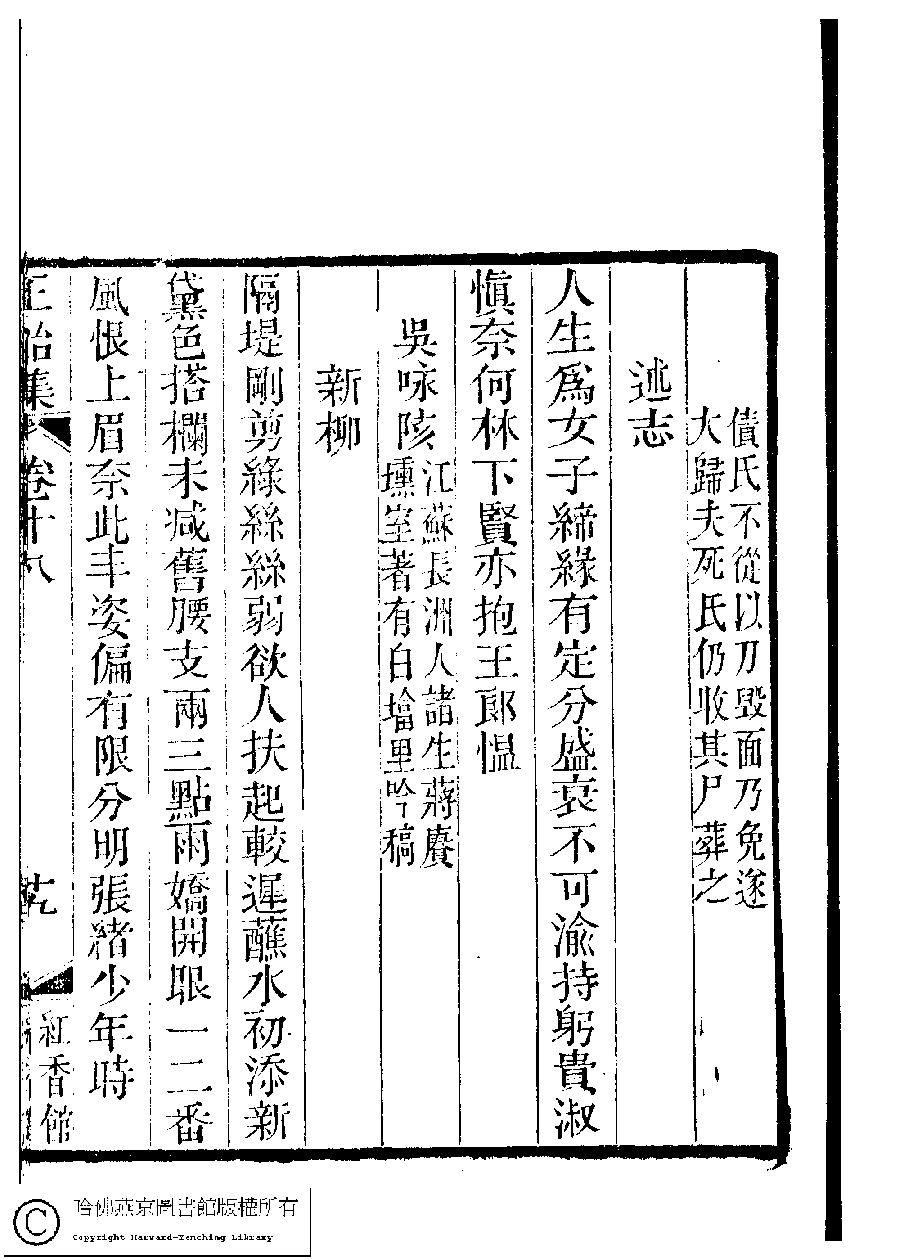 債氏不從以刀毀面乃免遂
大歸夫死氏仍收其尸葬之
述志
人生爲女子締緣有定分盛衰不可渝持躬貴淑
慎奈何林下賢亦抱王郎愠
吳咏陔
江蘇長洲人諸生蔣賡
壎室著有白墖里吟稿
新柳
隔堤剛剪綠絲絲弱欲人扶起較遲蘸水初添新
黛色搭欄未減舊腰支兩三點雨嬌開眼一二番
風恨上眉奈此丰姿偏有限分明張緒少年時
正始集 卷十八
紅香館
哈佛燕京圖書館版權所有
Copyright Harvard-Yenching Library